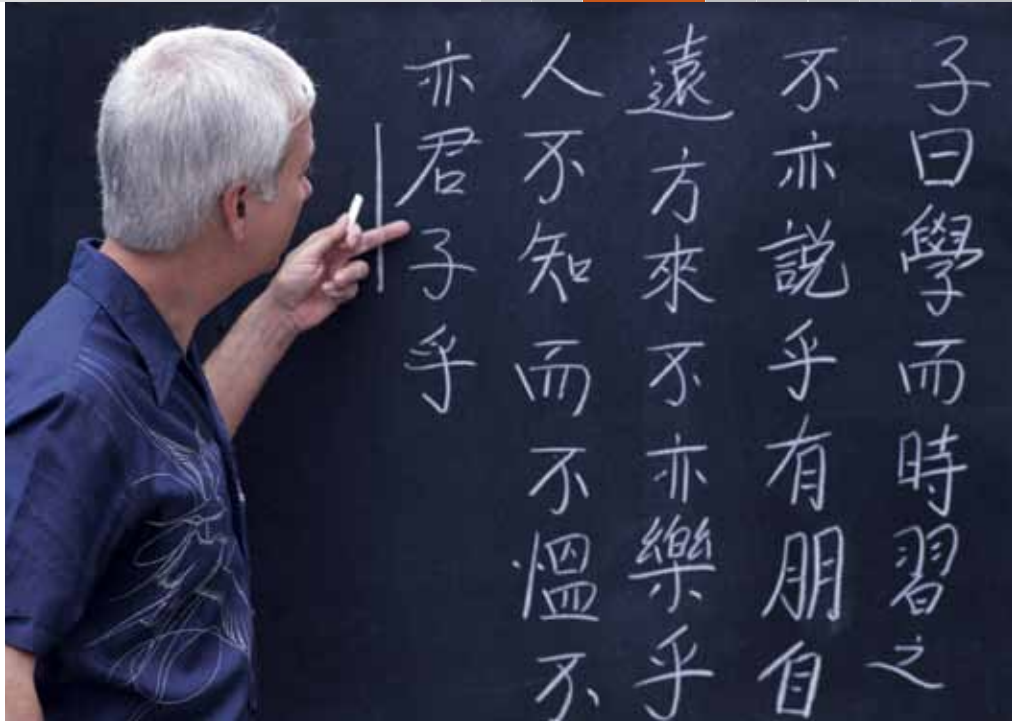 子曰學而時習之
不亦説乎有朋自
遠方來不亦樂乎
人不知而不慍不
亦君子乎